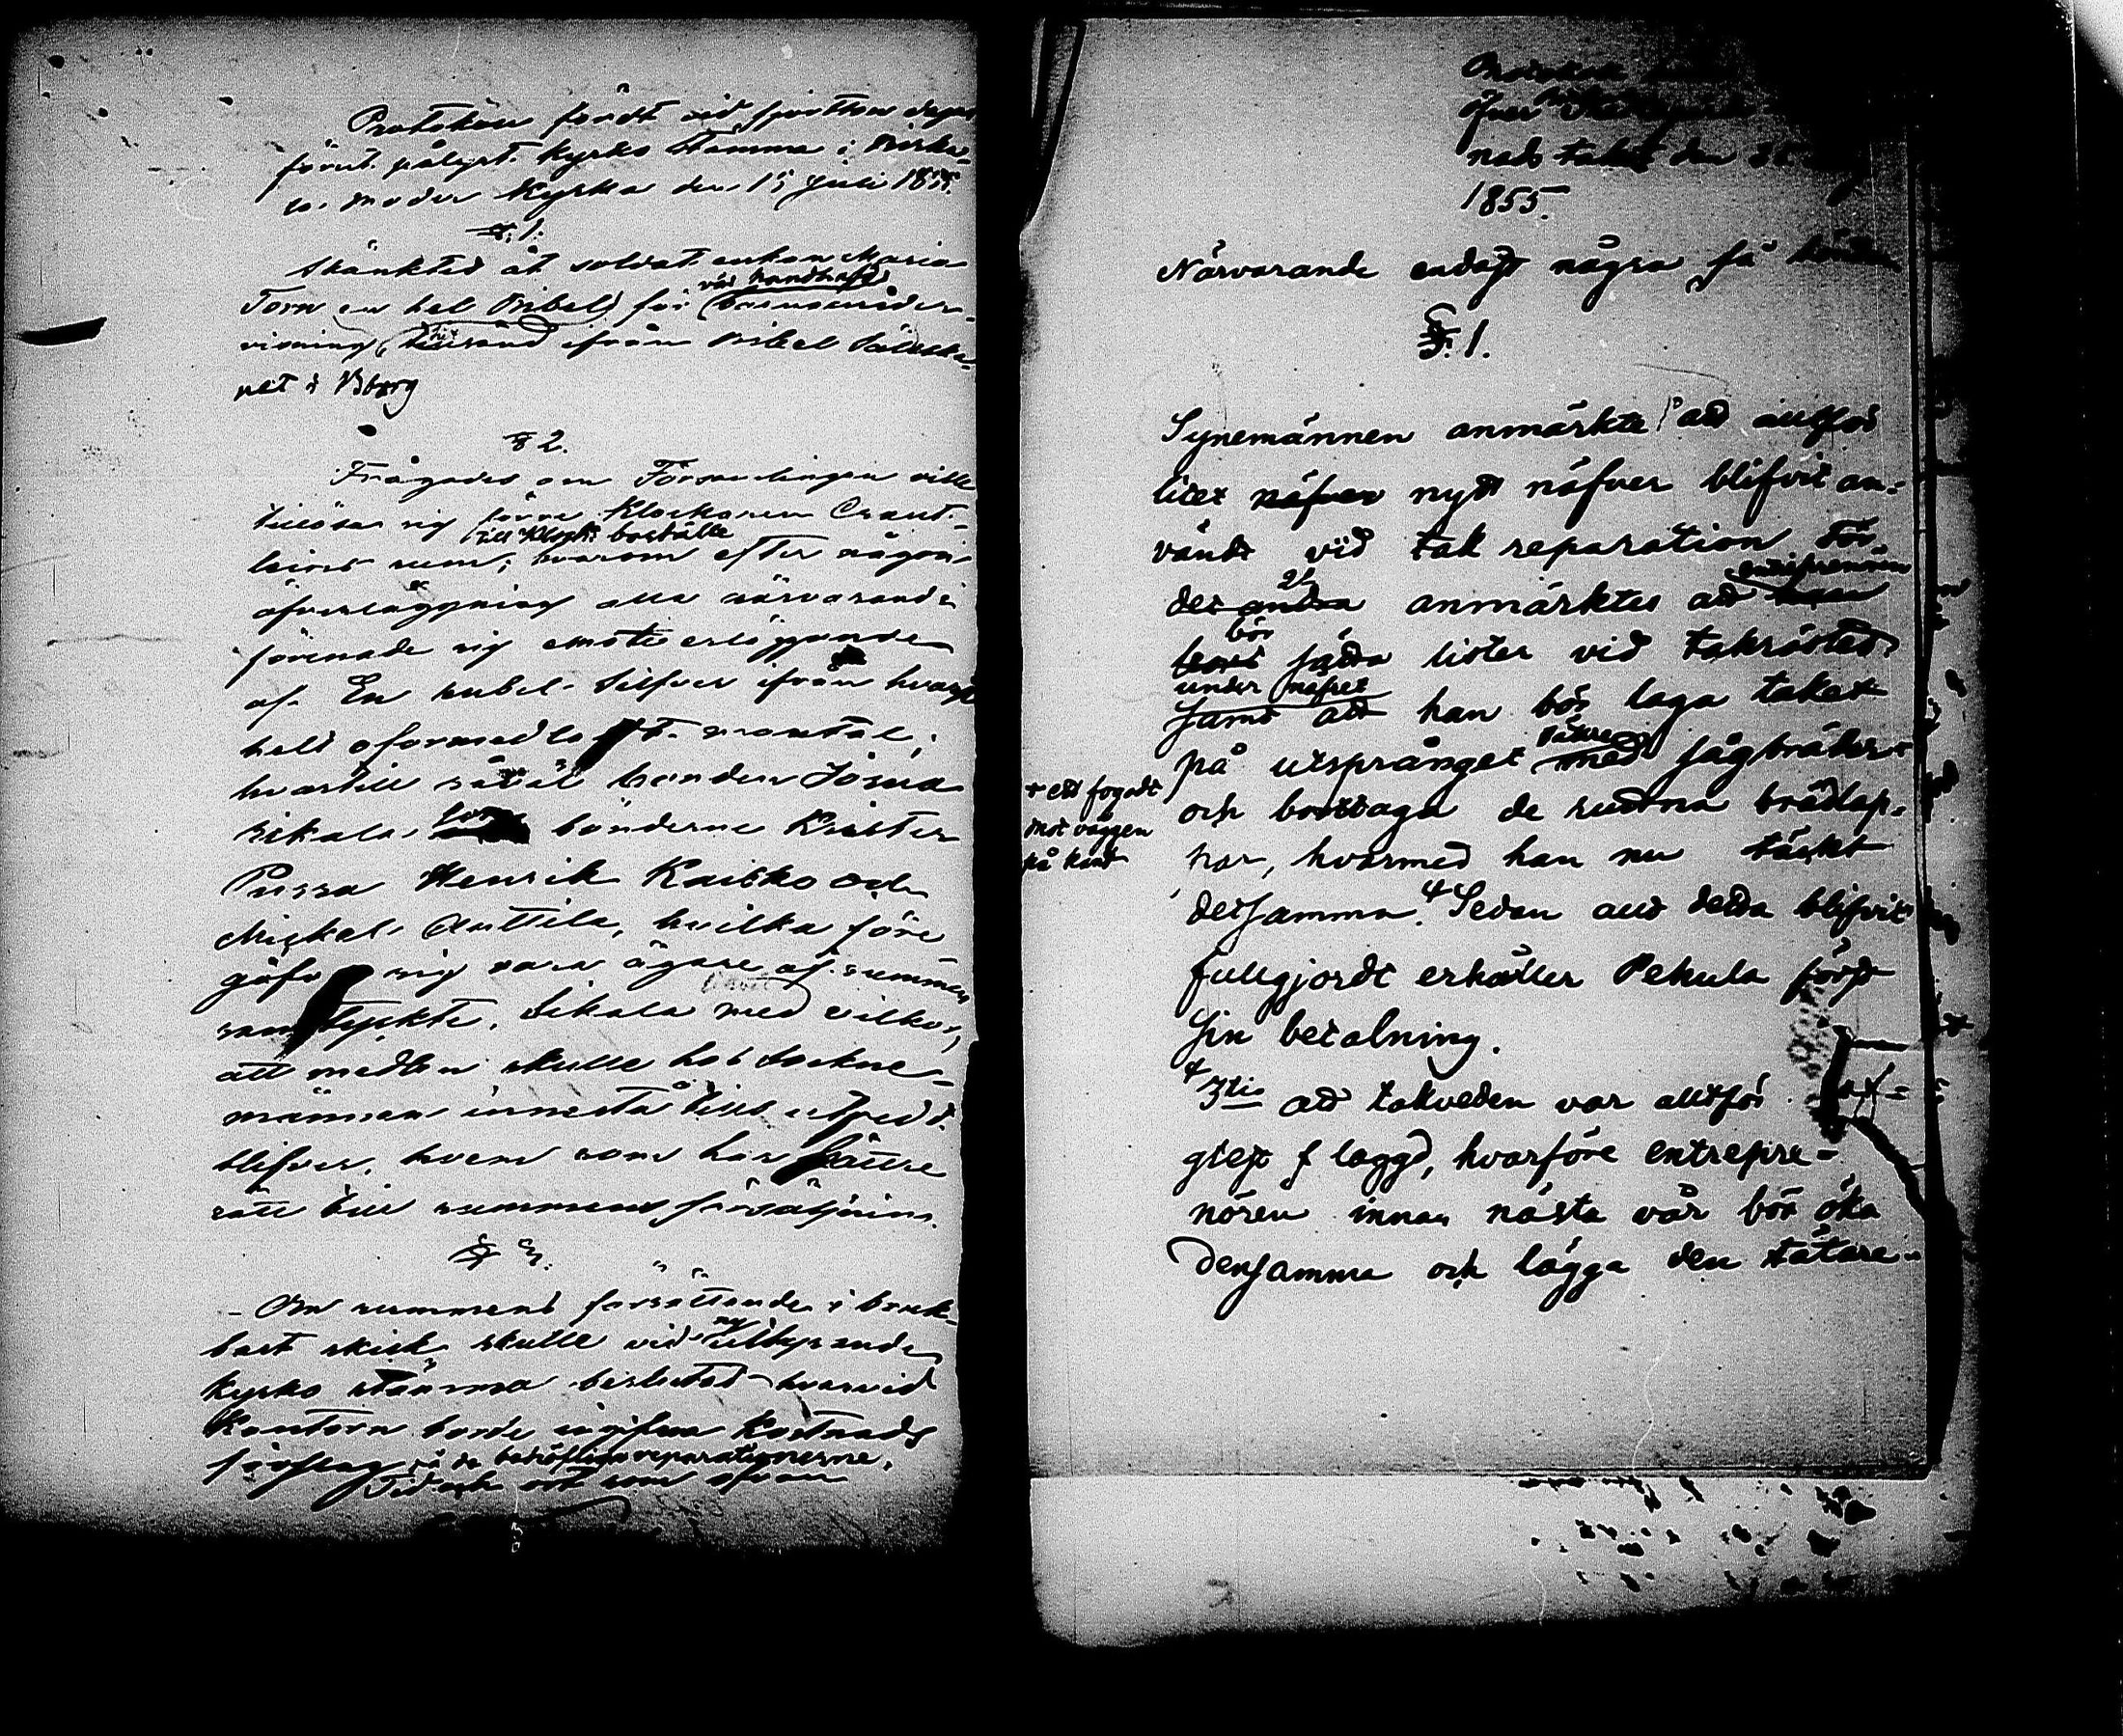 Protokoll fördt vid fjortton dagar
förut pålyst Kyrko stämma i Birka-
la moder Kyrka den 15 Juli 1855.
§. 1.
Skänktes åt soldat enkan Maria
Torn en hel Bibel för väl handhafd barnaunder-
visning, hit sänd ifrån Bibel Sällska-
pet i Åborg
§ 2.
Frågades om Församlingen ville
tillösa sig förre Klockaren
till Klock. boställe
rum; hvarom efter någon
öfverläggning alla närvarande
förenade sig emot erläggande
af En rubel Silfver ifrån hvarje
helt oförmedladt mantal;
hvartill såväl bonden Josua
Sikala, som bönderne Krister
Pussa Henrik Kaisko och
Mickel Anttila, hvilka före
gåfvo sig vara ägare af rummen
samtyckte. Sikala med vilkor,
att medlen skulle hos Sockne-
männen innestå tills utredt
blifver, hvem som har bättre
rätt till rummens försäljning.
§ 3.
- Om rummens försättande i bruk-
bart skick skulle vid ny utlysande
Kyrko stämma beslutas hvarvid
Kantorn borde ingifva Kostnads
förslag på de behöfliga reparationerne.
Tid och ort som ofvan
Protokoll
öfver
nads taket den
1855.
Närvarande endast några få bönder
§. 1.
Synemännen anmärkte 1o att alltför
litet näfver nytt näfver blifvit an-
vändt vid tak reparation För
det andra 2o anmärktes att entreprenören
bör sätta lister vid takröstet
under näfret
samt att han bör laga taket
på utsprånget med bättre sågbräder +
+ ett fogadt
mot väggen
på kant
och borttaga de ruttna brädlap-
par, hvarmed han nu täckt
detsamma. Sedan allt detta blifvit
fullgjordt erhåller Pekula först
sin betalning.
3tio att takveden var alltför
glest lagd, hvarföre entrepre-
nören innan nästa vår bör öka
densamma och lägga den tätare